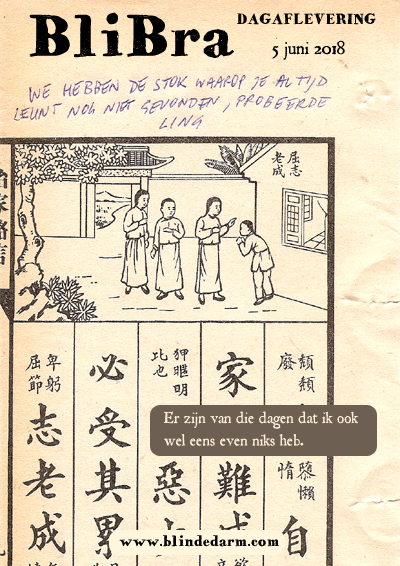 BliBra
DAGAFLEVERING
5 juni 2018
WE HEBBEN DE STOK WAAROP JE ALTIJD
LEUNT NOG NIET GEVONDEN, PROBEERDE
LING
屈志
老成
頹
廢
惰
慕懶
自
家
難
成
狎暱
比也
惡
必
受
其
累
卑躬
屈節
志
老
成
Er zijn van die dagen dat ik ook
wel eens even niks heb.
www.blindedarm.com